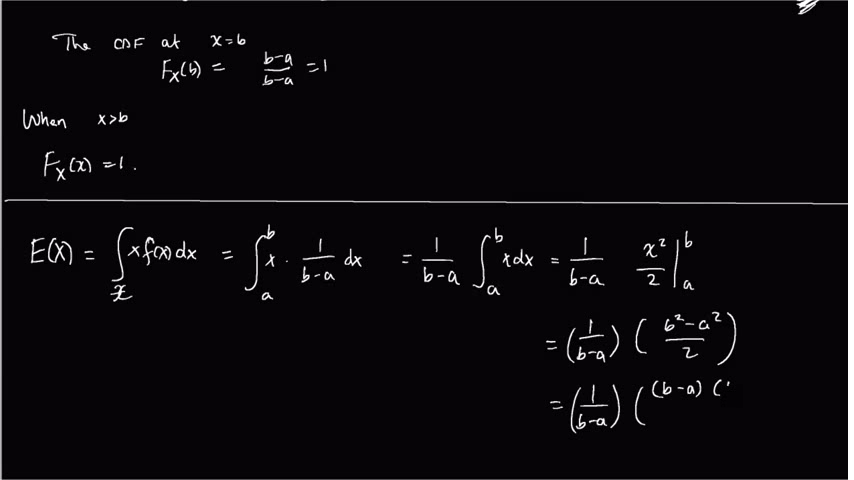 The CDF at x=b
F_X(b) = \frac{b-a}{b-a} = 1
When x>b
F_X(x) = 1.
E(X) = \int_{\mathcal{X}} x f(x) dx = \int_a^b x \cdot \frac{1}{b-a} dx = \frac{1}{b-a} \int_a^b x dx = \frac{1}{b-a} \frac{x^2}{2} |_a^b
= (\frac{1}{b-a}) ( \frac{b^2-a^2}{2} )
= (\frac{1}{b-a}) ( (b-a) (